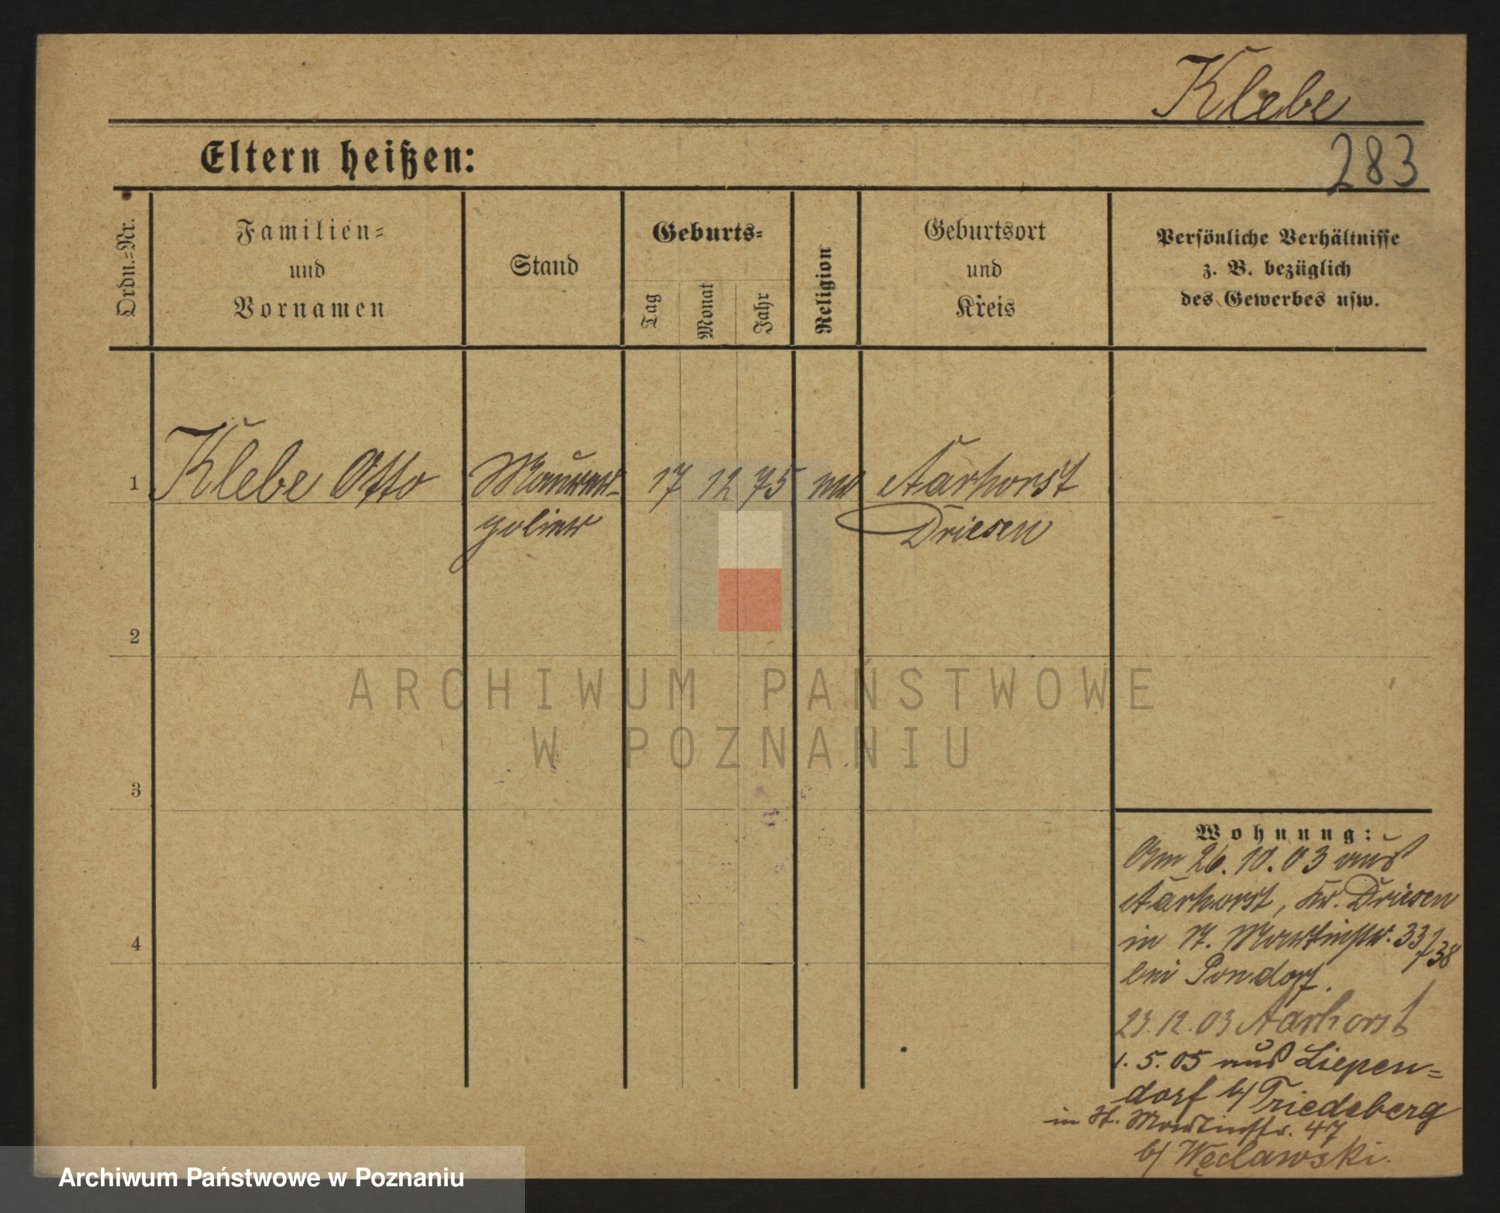 Klebe
283
Eltern heißen:
Ordn.-Nr.
Familien-
und
Vornamen
Stand
Geburts-
Tag
Monat
Jahr
Religion
Geburtsort
und
Kreis
Persönliche Verhältnisse
z. B. bezüglich
des Gewerbes usw.
1 Klebe Otto Maurer- 17 12 75 ev Aarhorst
polier Driesen
2
3
4
Wohnung:
Am 26.10.03 aus
Aarhorst, Kr. Driesen
in St. Martinstr. 33/38
bei
23.12.03 Aarhorst
1.5.05 aus Liepen-
dorf b/ Friedeberg
in St. Martinstr. 47
b/ Węclawski.
ARCHIWUM PAŃSTWOWE
W POZNANIU
Archiwum Państwowe w Poznaniu